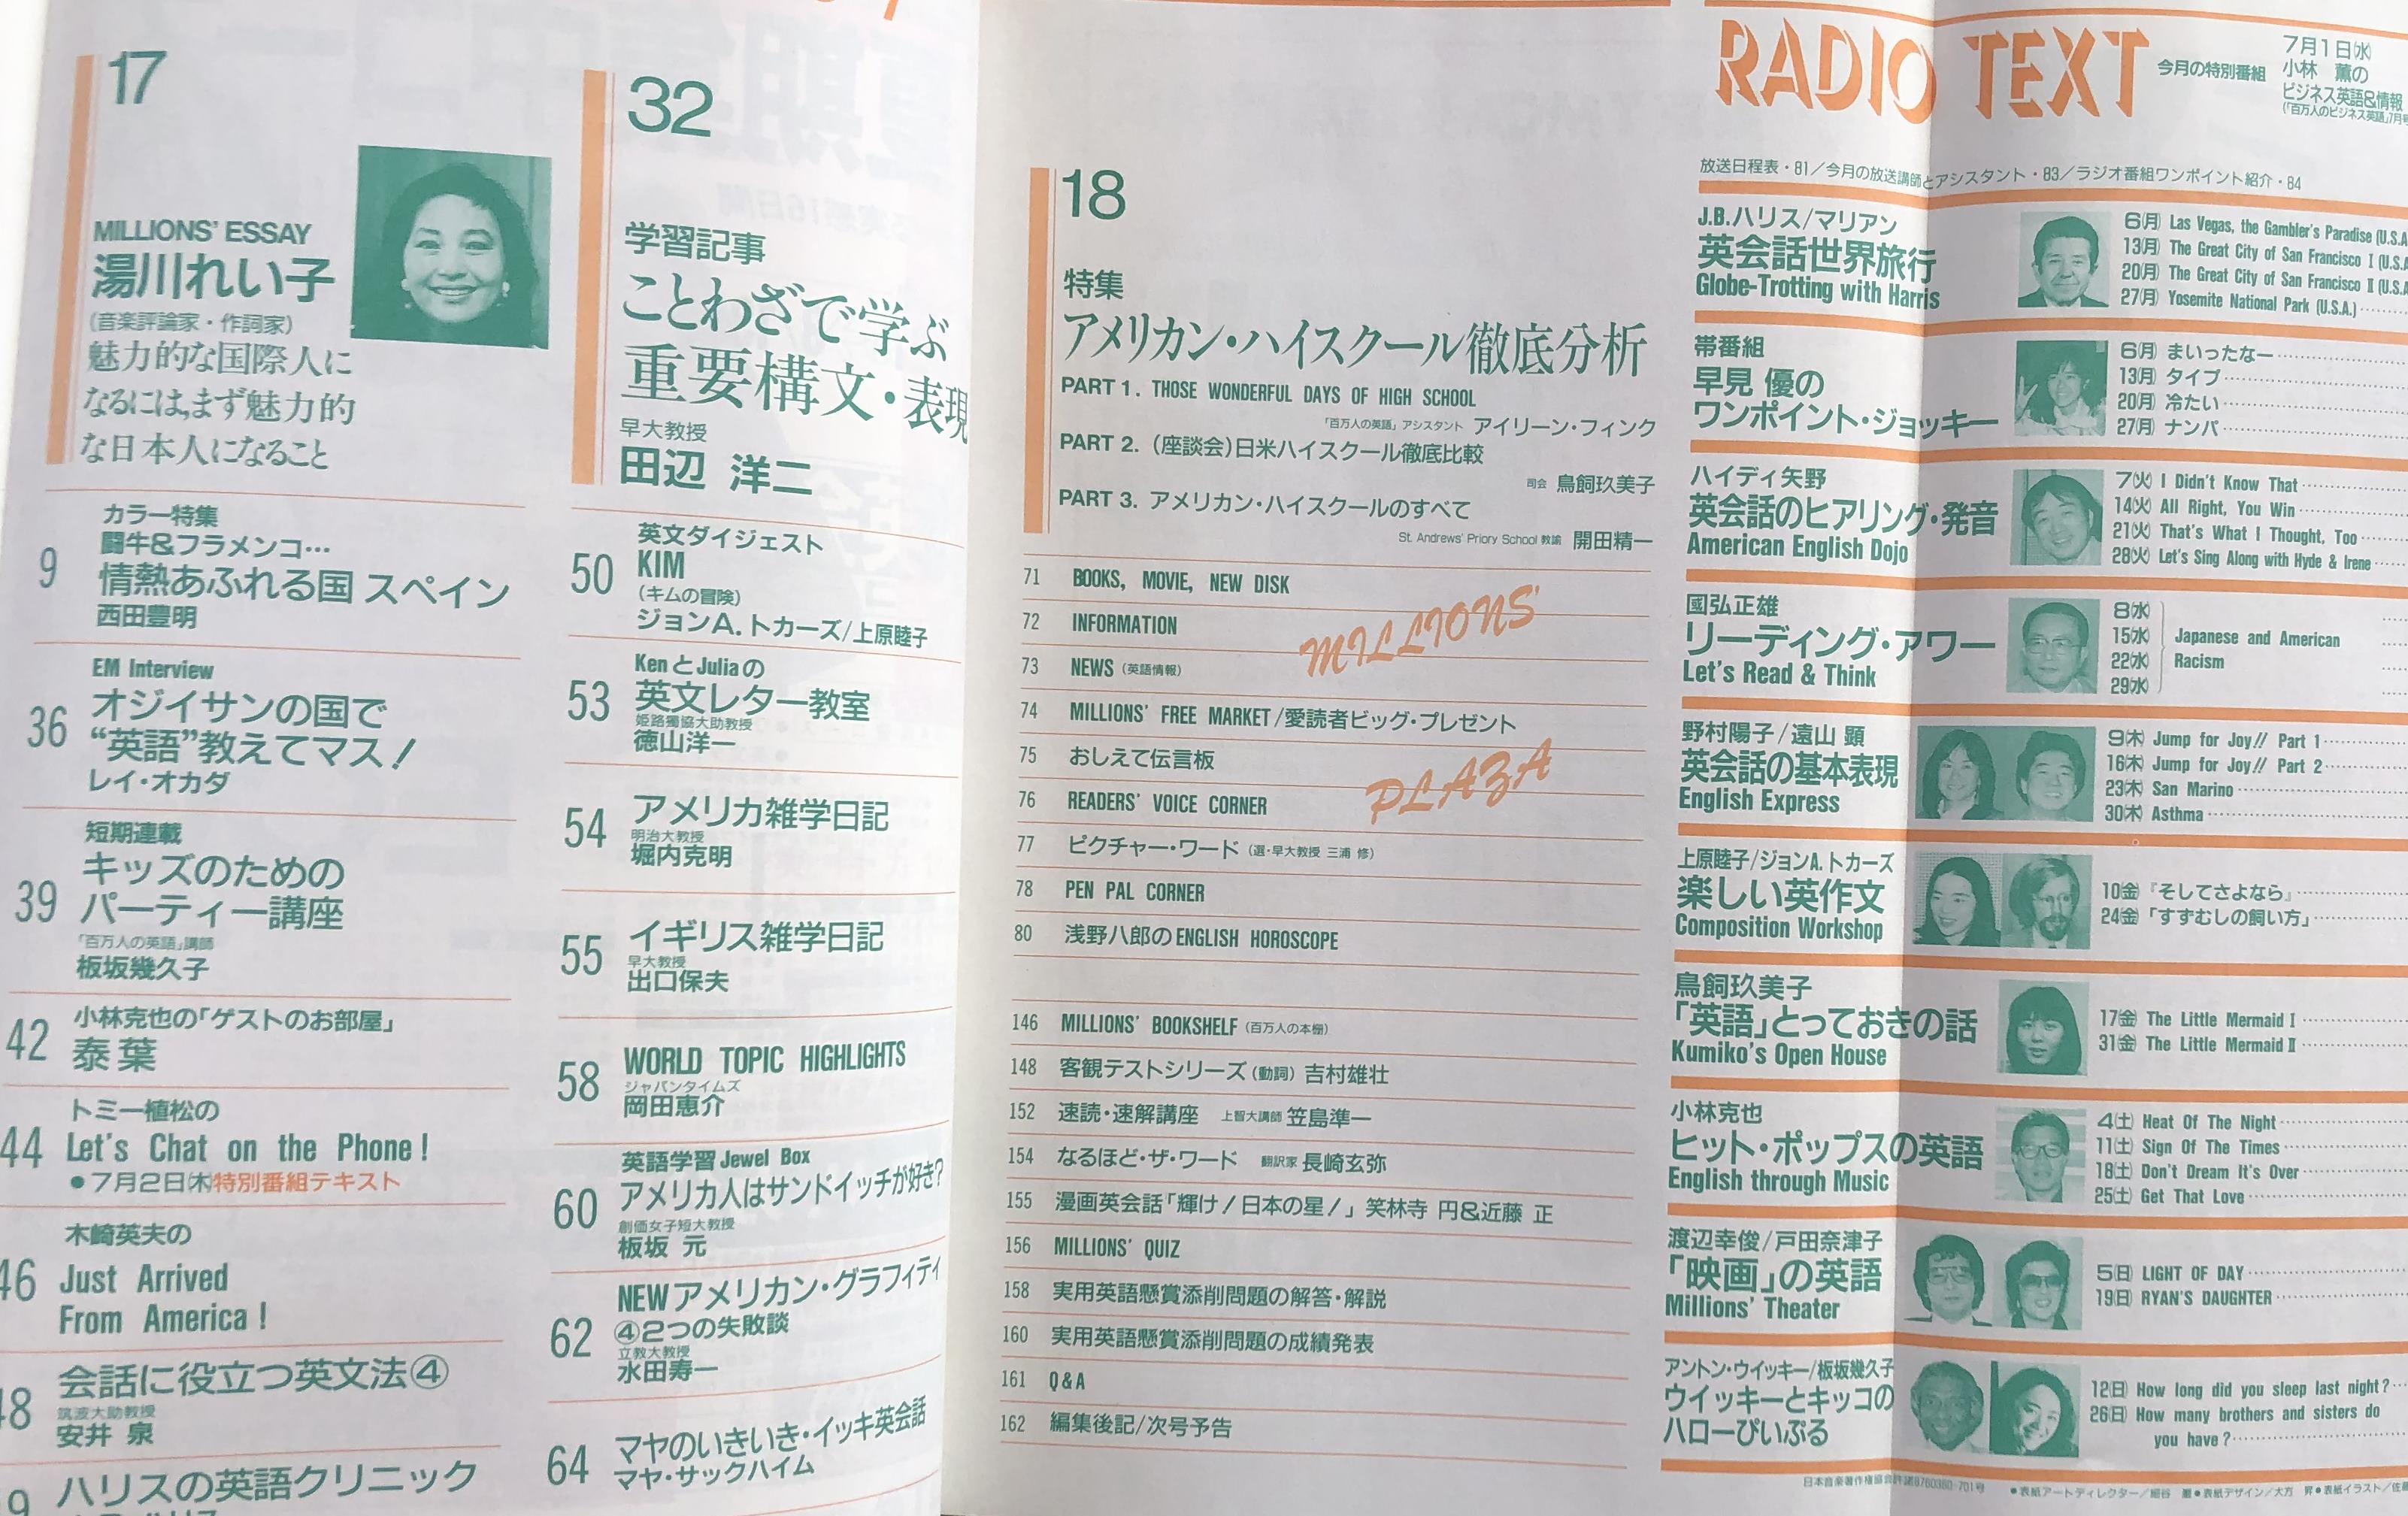 17
MILLIONS' ESSAY
湯川れい子
(音楽評論家・作詞家)
魅力的な国際人に
なるには、まず魅力的
な日本人になること
カラー特集
闘牛&フラメンコ…
9 情熱あふれる国 スペイン
西田豊明
EM Interview
オジイサンの国で
36 “英語”教えてマス!
レイ・オカダ
短期連載
キッズのための
39 パーティー講座
「百万人の英語」講師
板坂幾久子
小林克也の「ゲストのお部屋」
42 泰葉
トミー植松の
44 Let's Chat on the Phone!
●7月2日(木)特別番組テキスト
木崎英夫の
46 Just Arrived
From America!
会話に役立つ英文法④
筑波大助教授
安井 泉
ハリスの英語クリニック
32
学習記事
ことわざで学ぶ
重要構文・表現
早大教授
田辺 洋二
英文ダイジェスト
50 KIM
(キムの冒険)
ジョンA.トカーズ/上原睦子
KenとJuliaの
53 英文レター教室
姫路獨協大助教授
徳山洋一
54 アメリカ雑学日記
明治大教授
堀内克明
55 イギリス雑学日記
早大教授
出口保夫
58 WORLD TOPIC HIGHLIGHTS
ジャパンタイムズ
岡田恵介
英語学習 Jewel Box
60 アメリカ人はサンドイッチが好き?
創価女子短大教授
板坂 元
NEWアメリカン・グラフィティ
62 ④2つの失敗談
立教大教授
水田寿一
64 マヤのいきいき・イッキ英会話
マヤ・サックハイム
18
特集
アメリカン・ハイスクール徹底分析
PART 1. THOSE WONDERFUL DAYS OF HIGH SCHOOL
「百万人の英語」アシスタント アイリーン・フィンク
PART 2. (座談会)日米ハイスクール徹底比較
司会 鳥飼玖美子
PART 3. アメリカン・ハイスクールのすべて
St. Andrews' Priory School 教諭 開田精一
71 BOOKS, MOVIE, NEW DISK
72 INFORMATION
MILLIONS'
73 NEWS (英語情報)
74 MILLIONS' FREE MARKET/愛読者ビッグ・プレゼント
75 おしえて伝言板
PLAZA
76 READERS' VOICE CORNER
77 ピクチャー・ワード (選・早大教授 三浦 修)
78 PEN PAL CORNER
80 浅野八郎のENGLISH HOROSCOPE
146 MILLIONS' BOOKSHELF (百万人の本棚)
148 客観テストシリーズ(動詞) 吉村雄壮
152 速読・速解講座 上智大講師 笠島準一
154 なるほど・ザ・ワード 翻訳家 長崎玄弥
155 漫画英会話「輝け!日本の星!」笑林寺 円&近藤 正
156 MILLIONS' QUIZ
158 実用英語懸賞添削問題の解答・解説
160 実用英語懸賞添削問題の成績発表
161 Q&A
162 編集後記/次号予告
RADIO TEXT
今月の特別番組
7月1日(水)
小林 薫の
ビジネス英語&情報
(「百万人のビジネス英語」7月号
放送日程表・81/今月の放送講師とアシスタント・83/ラジオ番組ワンポイント紹介・84
J.B.ハリス/マリアン
英会話世界旅行
Globe-Trotting with Harris
6(月) Las Vegas, the Gambler's Paradise (U.S.A
13(月) The Great City of San Francisco I (U.S.A
20(月) The Great City of San Francisco II (U.S.A
27(月) Yosemite National Park (U.S.A.)
帯番組
早見 優の
ワンポイント・ジョッキー
6(月) まいったなー
13(月) タイプ
20(月) 冷たい
27(月) ナンパ
ハイディ矢野
英会話のヒアリング・発音
American English Dojo
7(火) I Didn't Know That
14(火) All Right, You Win
21(火) That's What I Thought, Too
28(火) Let's Sing Along with Hyde & Irene
國弘正雄
リーディング・アワー
Let's Read & Think
8(水)
15(水) Japanese and American
22(水) Racism
29(水)
野村陽子/遠山 顕
英会話の基本表現
English Express
9(木) Jump for Joy!! Part 1
16(木) Jump for Joy!! Part 2
23(木) San Marino
30(木) Asthma
上原睦子/ジョンA.トカーズ
楽しい英作文
Composition Workshop
10(金)『そしてさよなら』
24(金)「すずむしの飼い方」
鳥飼玖美子
「英語」とっておきの話
Kumiko's Open House
17(金) The Little Mermaid I
31(金) The Little Mermaid II
小林克也
ヒット・ポップスの英語
English through Music
4(土) Heat Of The Night
11(土) Sign Of The Times
18(土) Don't Dream It's Over
25(土) Get That Love
渡辺幸俊/戸田奈津子
「映画」の英語
Millions' Theater
5(日) LIGHT OF DAY
19(日) RYAN'S DAUGHTER
アントン・ウイッキー/板坂幾久子
ウイッキーとキッコの
ハローぴいぷる
12(日) How long did you sleep last night?
26(日) How many brothers and sisters do
you have?
日本音楽著作権協会許諾8760380-701号
●表紙アートディレクター/細谷 巖●表紙デザイン/大方 昇●表紙イラスト/佐藤